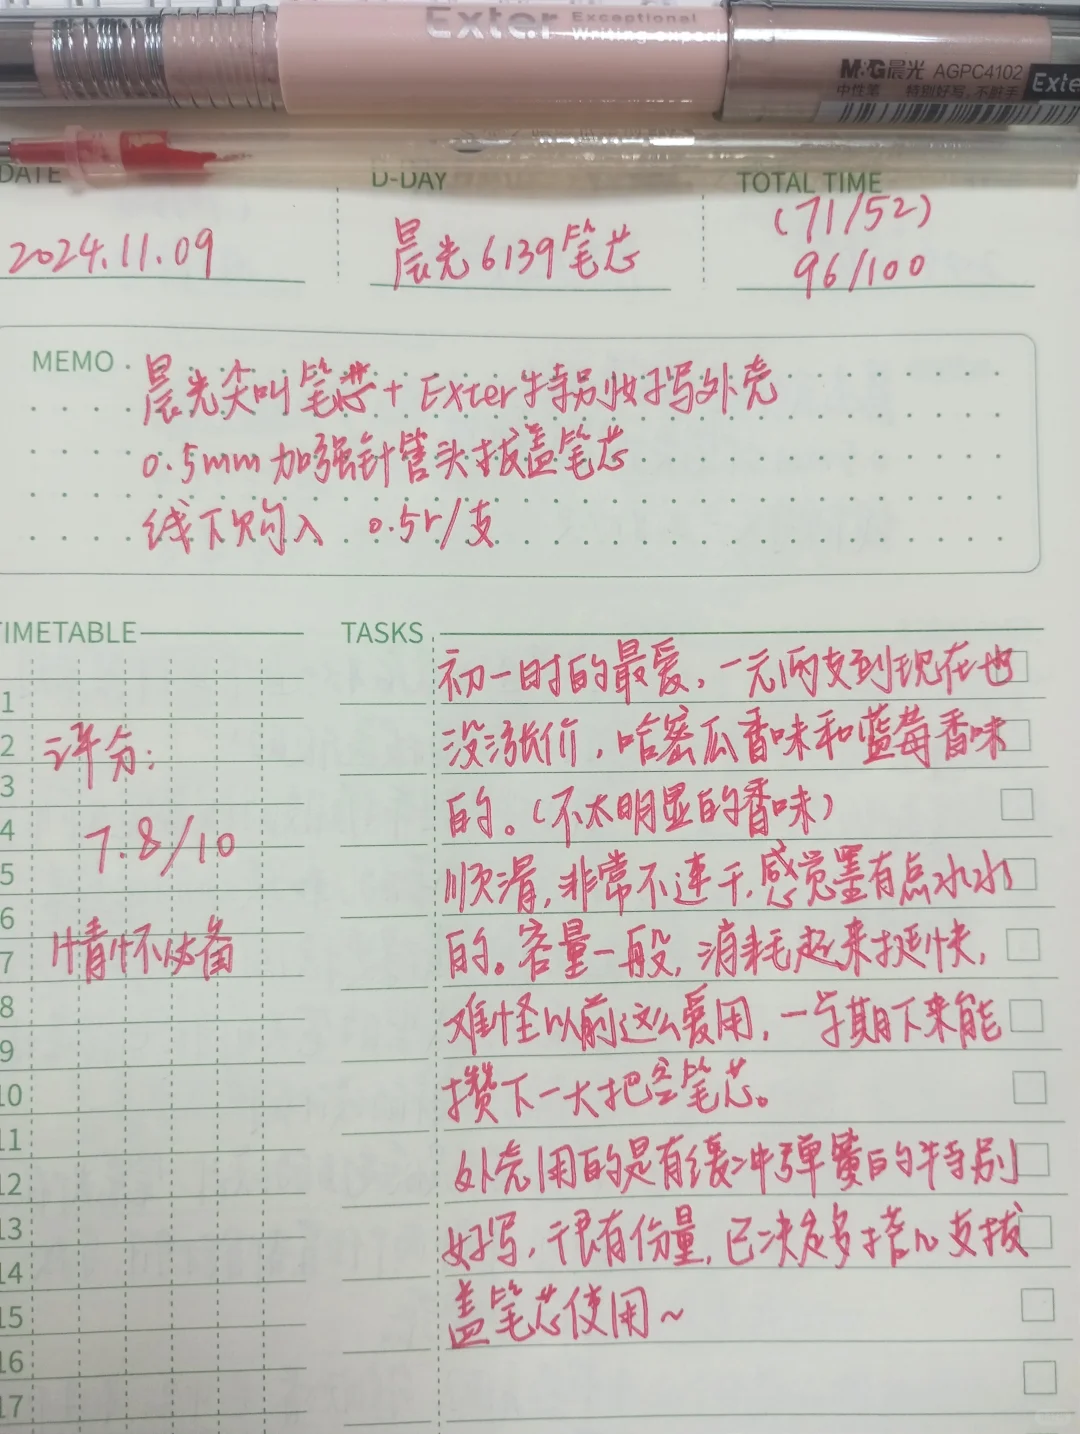 Exter Exceptional
Writing experience
M&G晨光 AGPC4102
中性笔 特别好写,不脏手
Exte
DATE
D-DAY
TOTAL TIME
2024.11.09
晨光6139笔芯
(71/52)
96/100
MEMO
晨光尖叫笔芯+Exter特别好写外壳
0.5mm加强针管头拔盖笔芯
线下购入 0.5r/支
TIMETABLE
TASKS
1
2
3
4
5
6
7
8
9
10
11
12
13
14
15
16
17
评分:
7.8/10
情怀必备
初一时的最爱,一元两支到现在也
没涨价,哈密瓜香味和蓝莓香味
的。(不太明显的香味)
顺滑,非常不速干,感觉墨有点水水
的。容量一般,消耗起来挺快,
难怪以前这么爱用,一学期下来能
攒下一大把空笔芯。
外壳用的是有缓冲弹簧的特别
好写,很有份量,已决定多搭几支拔
盖笔芯使用~